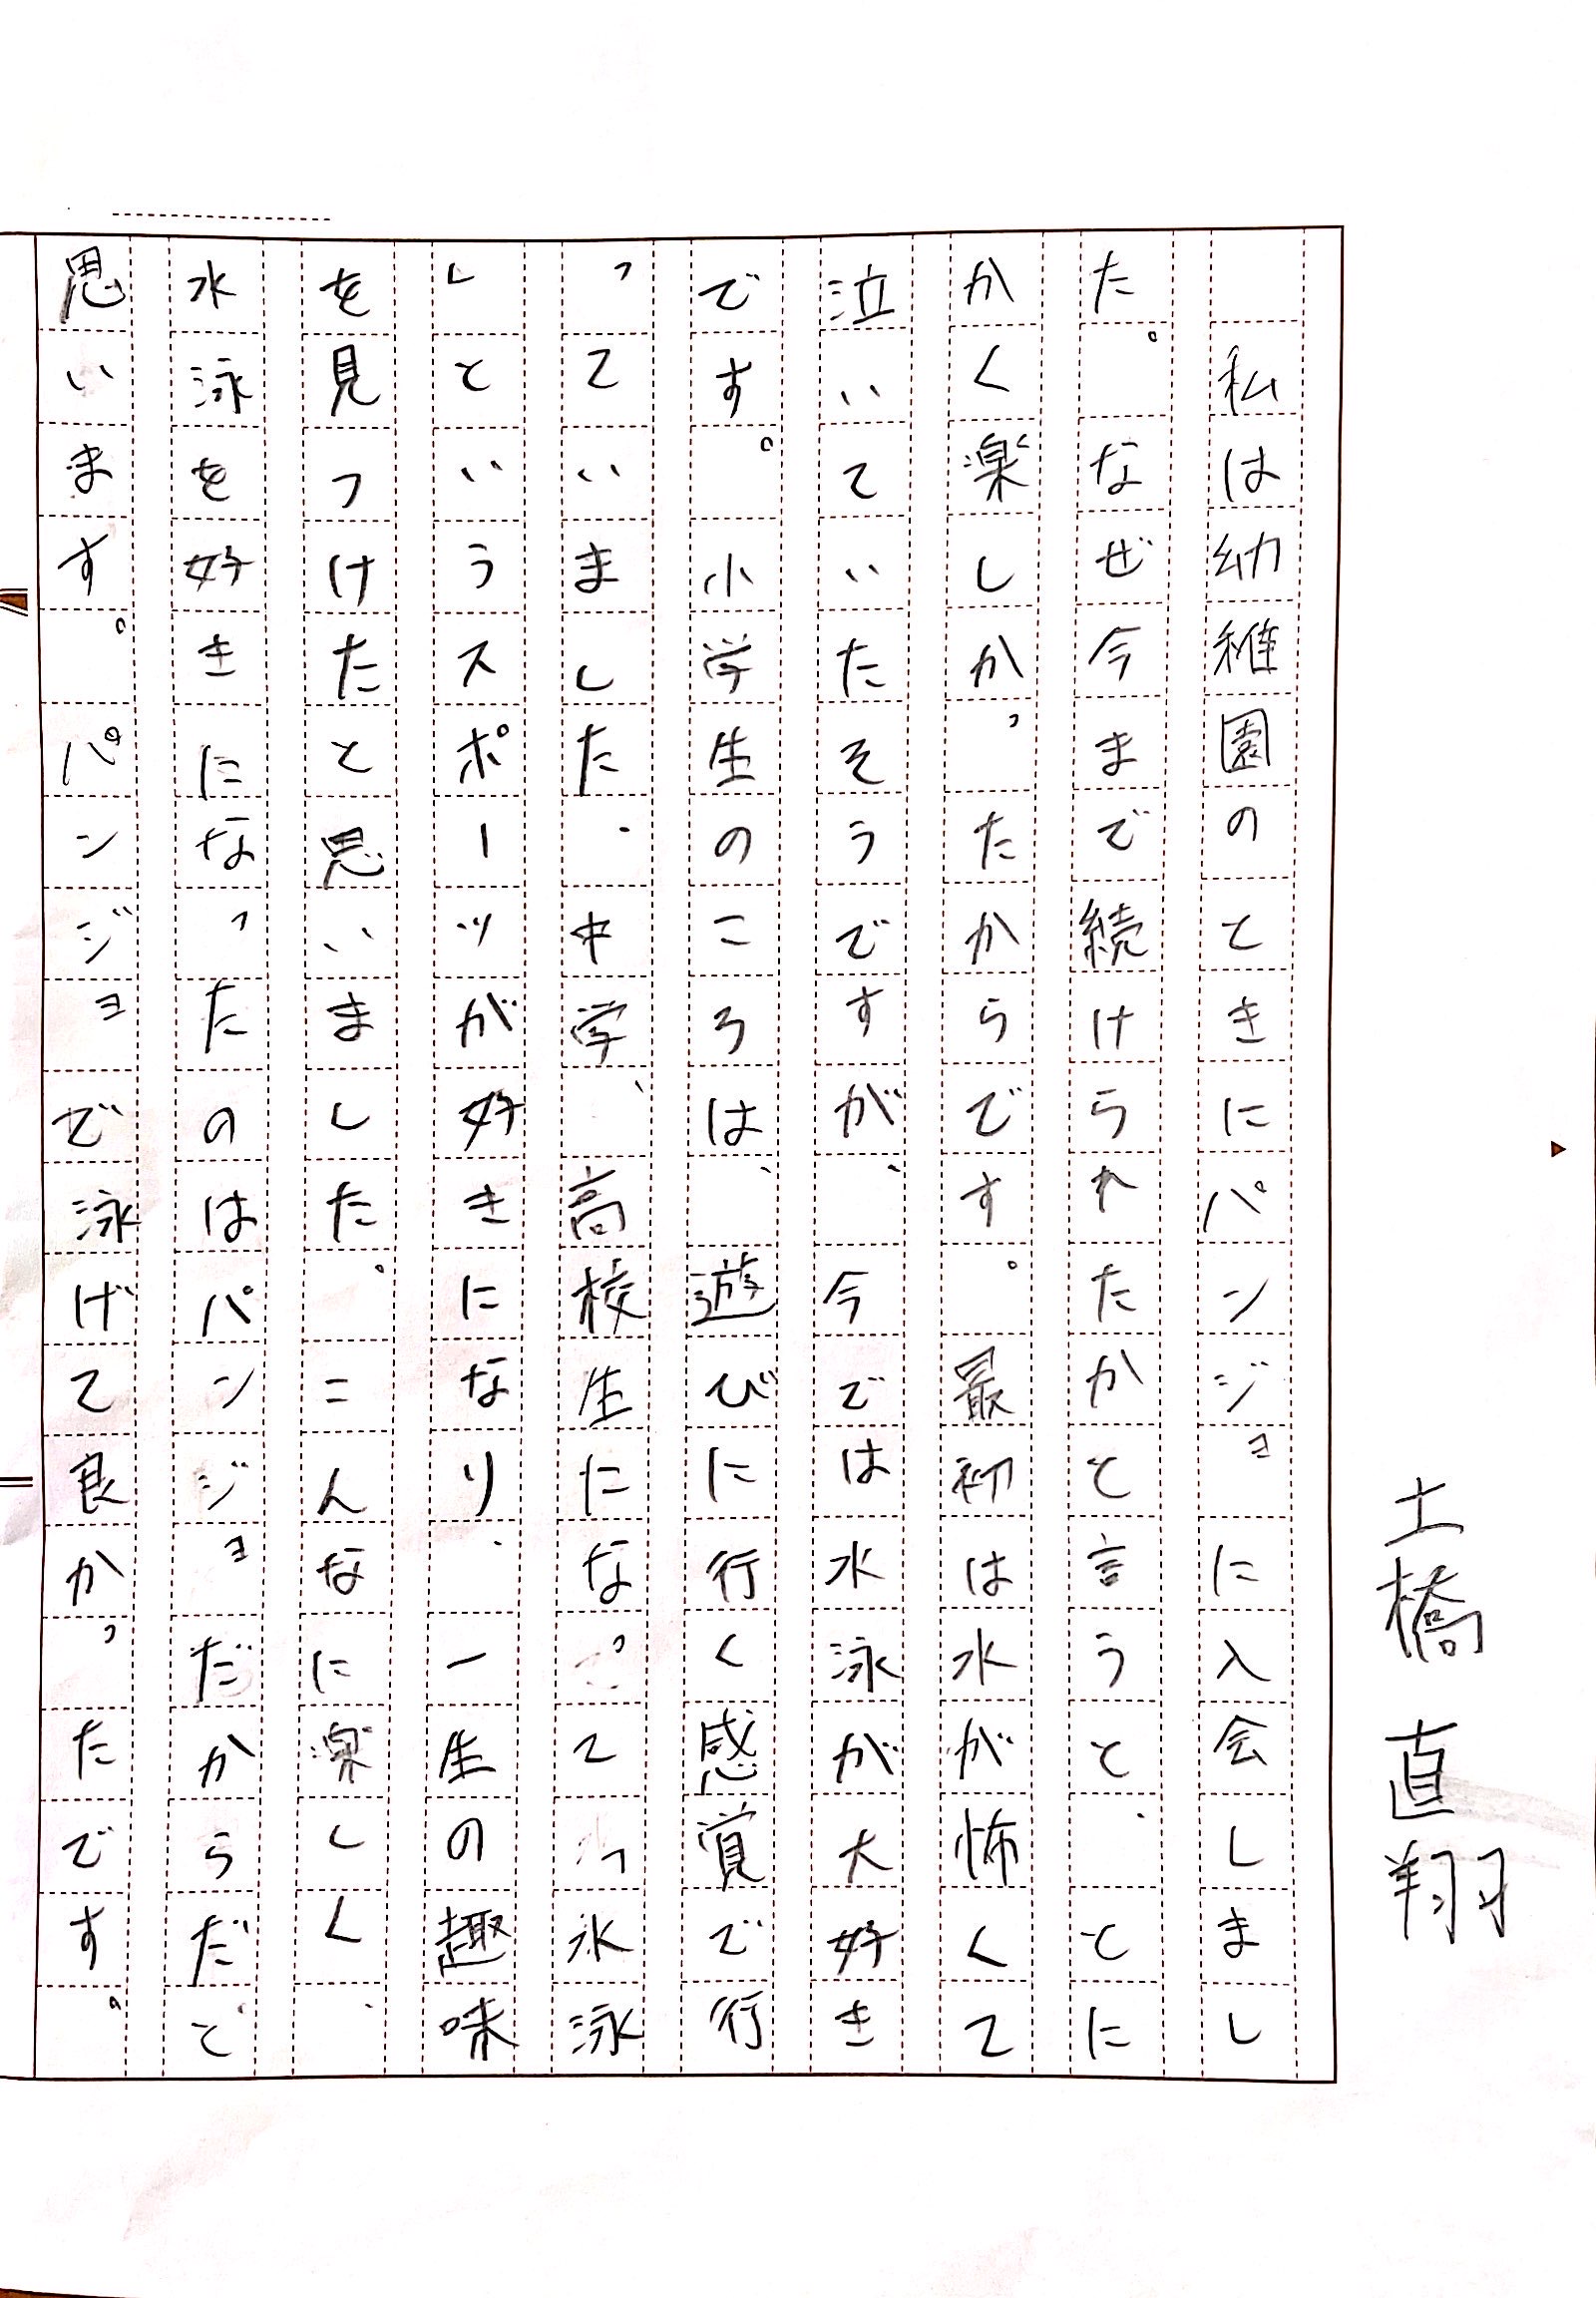 土橋直翔
私は幼稚園のときにパンジョに入会しまし
た。なぜ今まで続けられたかと言うと、とに
かく楽しかったからです。最初は水が怖くて
泣いていたそうですが、今では水泳が大好き
です。小学生のころは、遊びに行く感覚で行
っていました、中学、高校生になって水泳
」というスポーツが好きになり、一生の趣味
を見つけたと思いました。こんなに楽しく、
水泳を好きになったのはパンジョだからだと
思います。パンジョで泳げて良かったです。